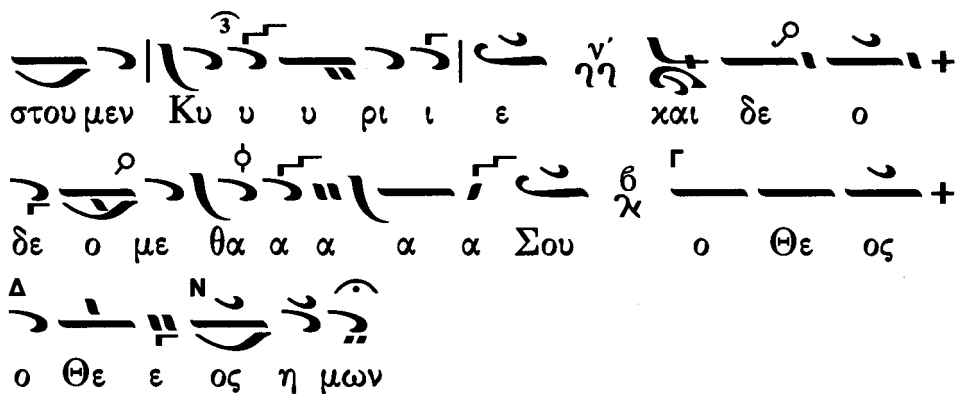 στου μεν Κυ υ υ ρι ι ε και δε ο
δε ο με θα α α α α Σου ο Θε ος
ο Θε ε ος η μων